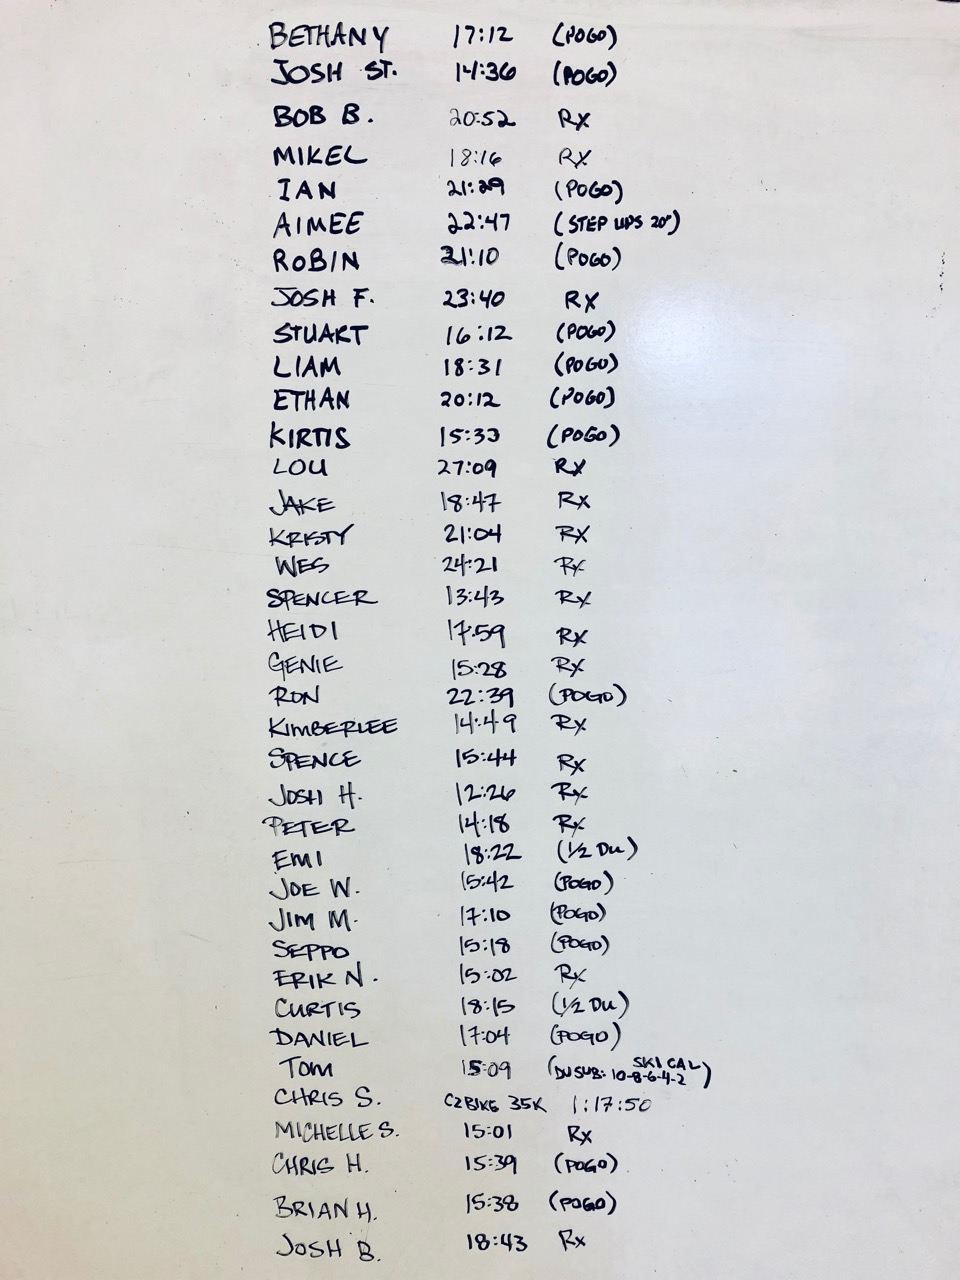 BETHANY 17:12 (POGO)
JOSH ST. 14:36 (POGO)
BOB B. 20:52 Rx
MIKEL 18:16 RX
IAN 21:29 (POGO)
AIMEE 22:47 (STEP UPS 20")
ROBIN 21:10 (POGO)
JOSH F. 23:40 RX
STUART 16:12 (POGO)
LIAM 18:31 (POGO)
ETHAN 20:12 (POGO)
KIRTIS 15:33 (POGO)
LOU 27:09 Rx
JAKE 18:47 Rx
KRISTY 21:04 RX
WES 24:21 Rx
SPENCER 13:43 Rx
HEIDI 17:59 Rx
GENIE 15:28 Rx
RON 22:39 (POGO)
KIMBERLEE 14:49 Rx
SPENCE 15:44 Rx
JOSH H. 12:26 Rx
PETER 14:18 Rx
EMI 18:22 (1/2 DU)
JOE W. 15:42 (POGO)
JIM M. 17:10 (POGO)
SEPPO 15:18 (POGO)
ERIK N. 15:02 Rx
CURTIS 18:15 (1/2 DU)
DANIEL 17:04 (POGO)
TOM 15:09 (DU SUB: 10-8-6-4-2 SKI CAL)
CHRIS S. C2 BIKE 35K 1:17:50
MICHELLE S. 15:01 Rx
CHRIS H. 15:39 (POGO)
BRIAN H. 15:38 (POGO)
JOSH B. 18:43 Rx